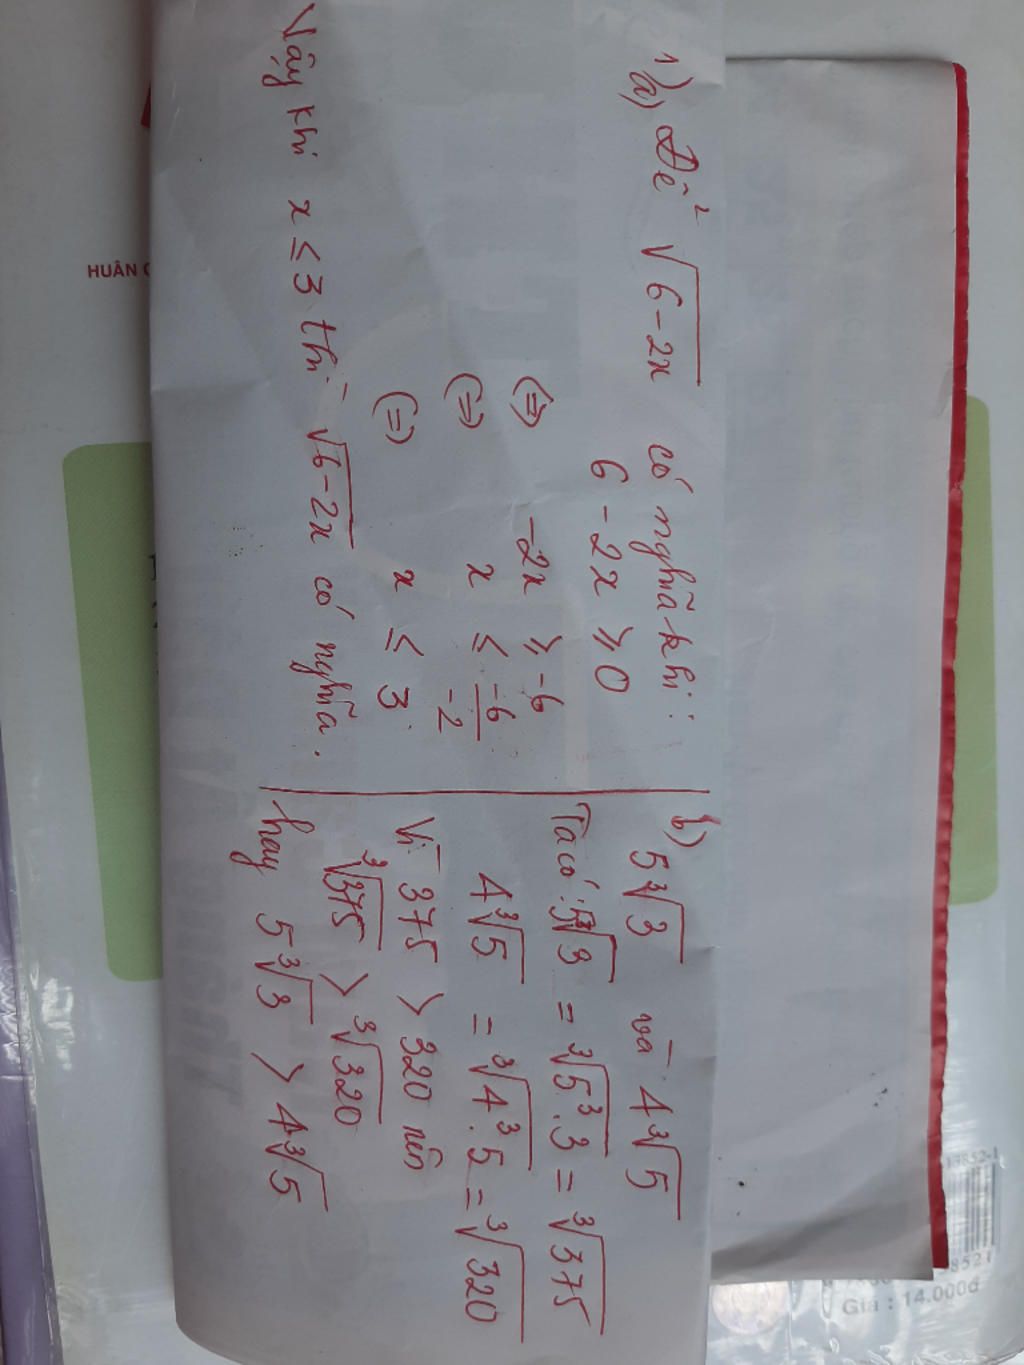 1) a) Để √6-2x có nghĩa khi:
6 - 2x ≥ 0
(=) -2x ≥ -6
(=) x ≤ -6/-2
(=) x ≤ 3
Vậy khi x ≤ 3 thì √6-2x có nghĩa.
b) 5∛3 và 4∛5
Ta có: 5∛3 = ∛5³.3 = ∛375
4∛5 = ∛4³.5 = ∛320
Vì 375 > 320 nên
∛375 > ∛320
hay 5∛3 > 4∛5
HUÂN C
13852-1
38521
Giá : 14.000đ